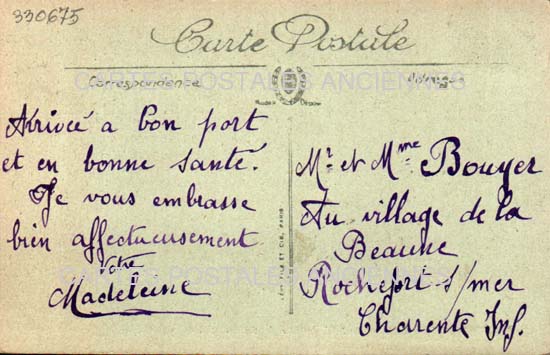 330675
Carte Postale
CARTES POSTALES ANCIENNES
Correspondance
Adresse
Arrivée a bon port
et en bonne santé.
Je vous embrasse
bien affectueusement
Votre
Madeleine
Mr et Mme Bouyer
Au village de la
Beaune
Rochefort s/mer
Charente Inf.
CARTES POSTALES ANCIENNES